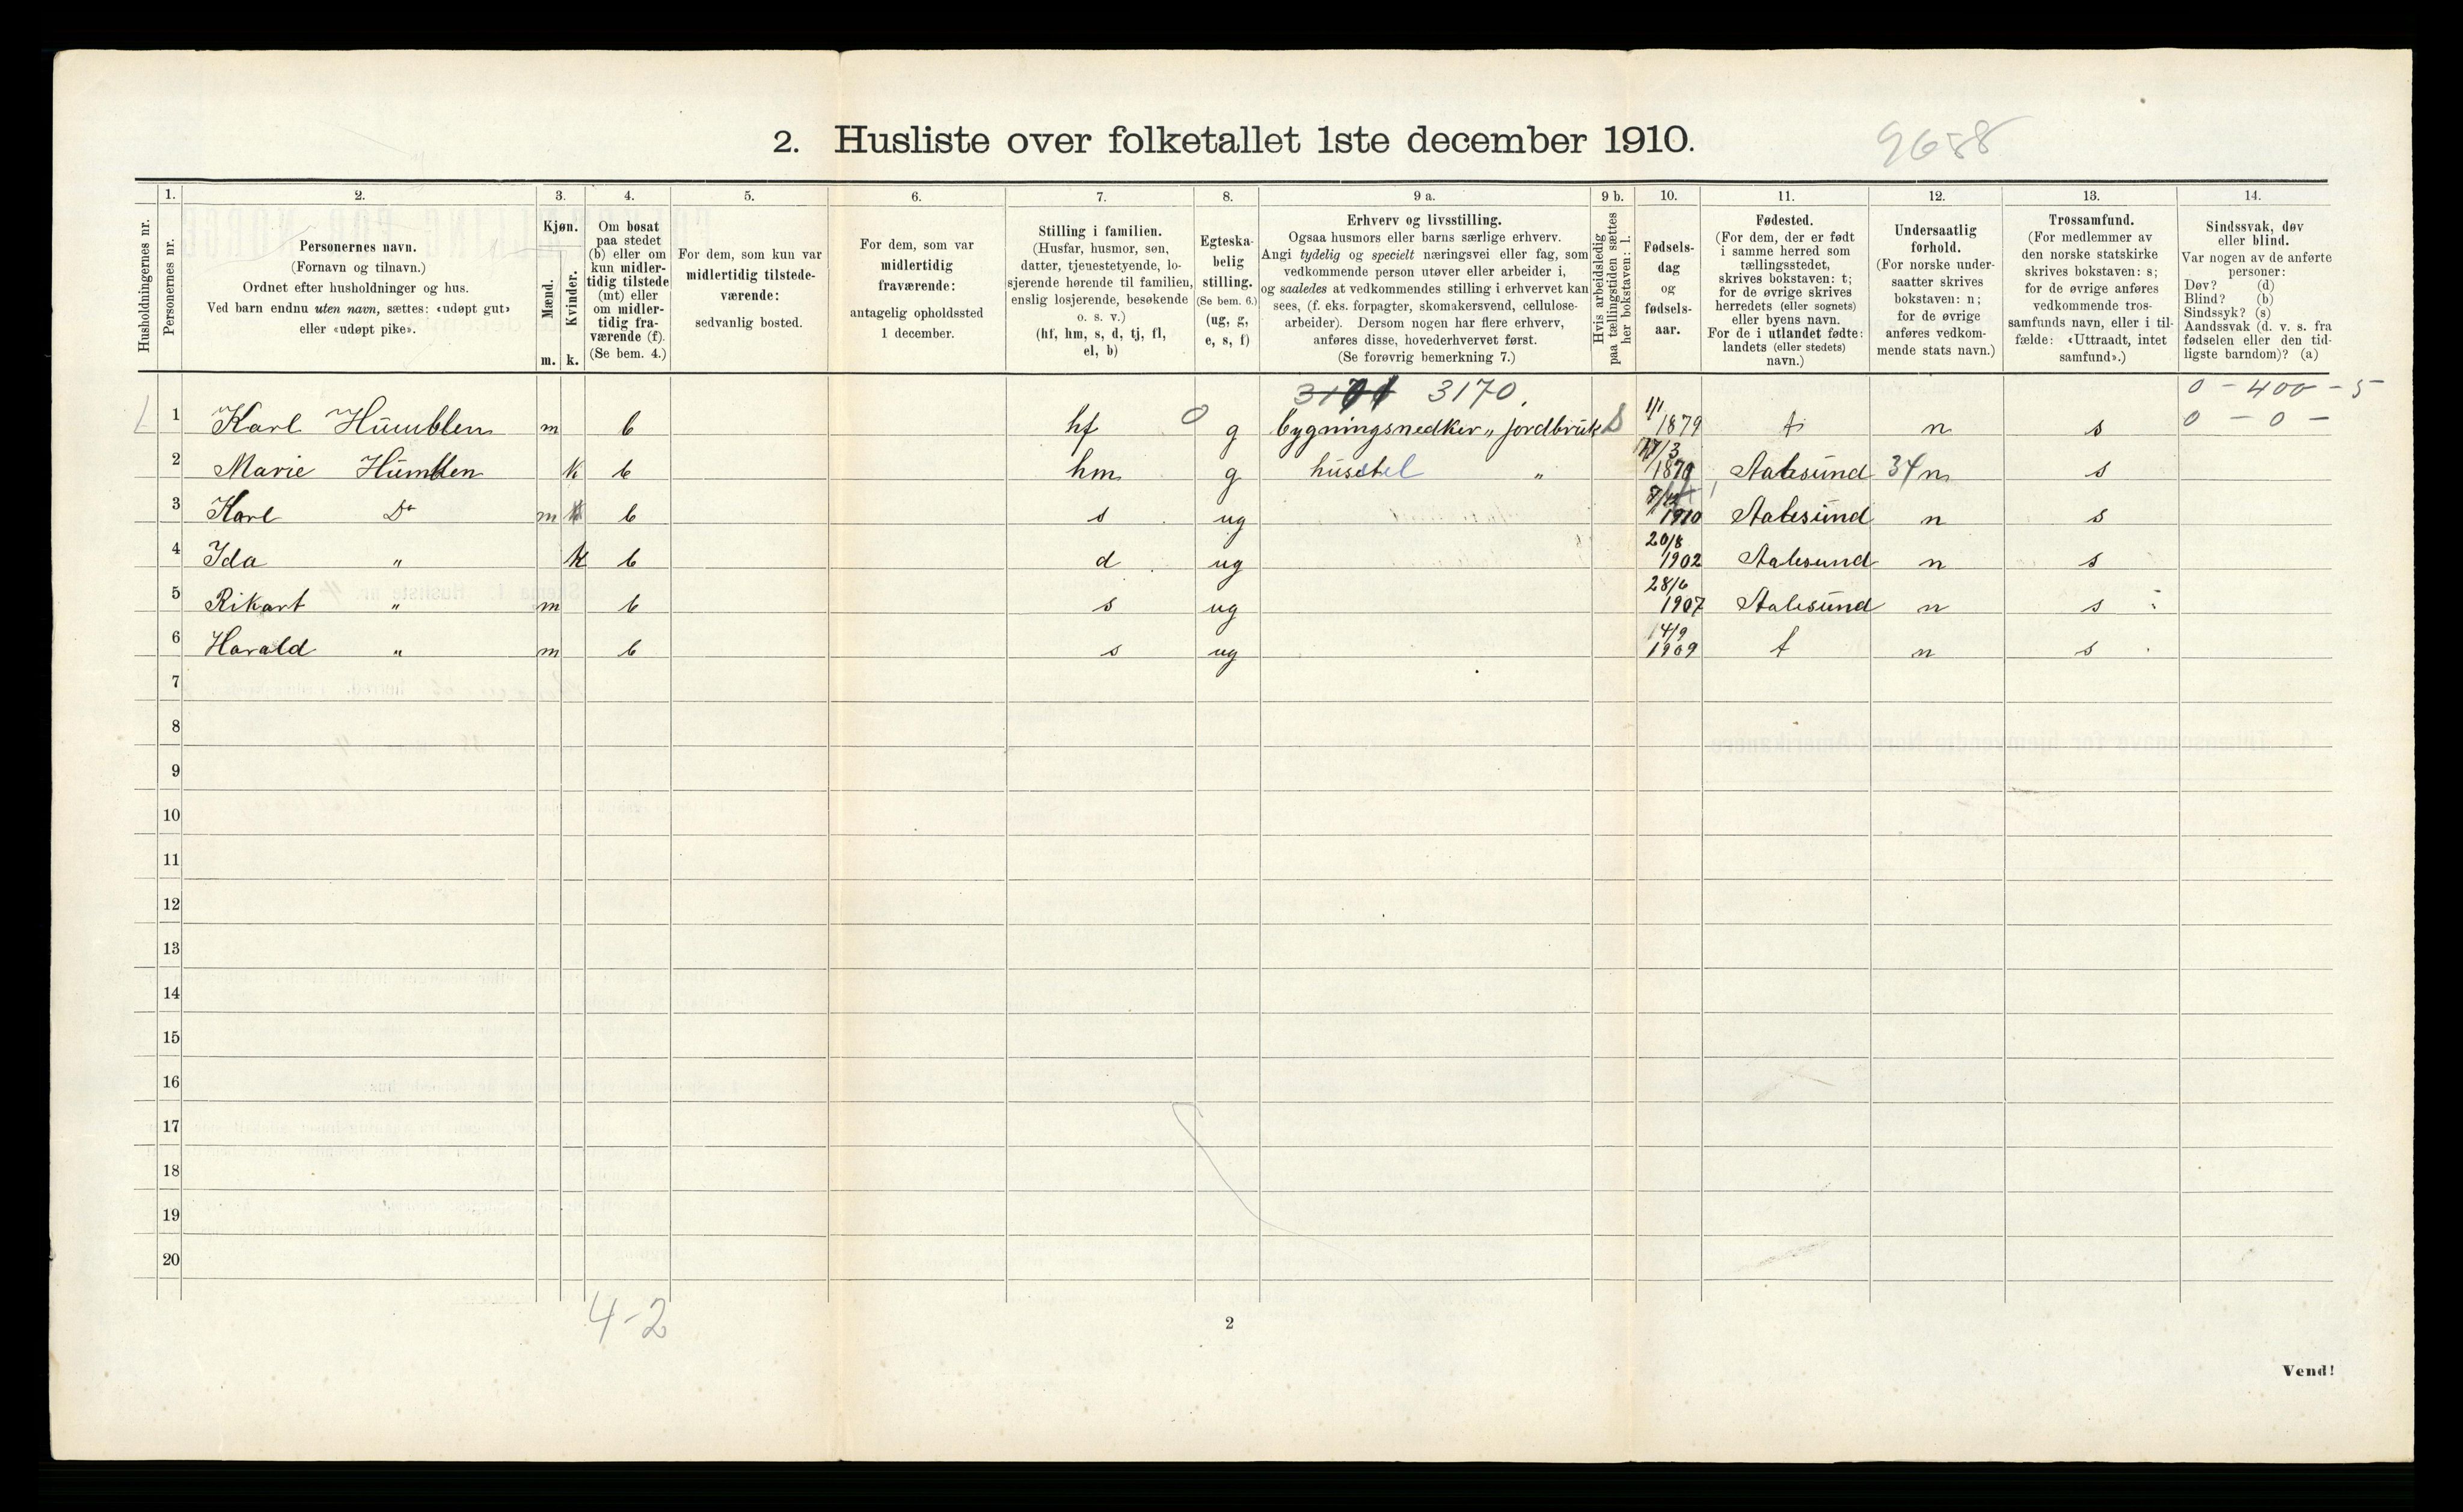 2. Husliste over folketallet 1ste december 1910.
9658
Husholdningernes nr.
1. Personernes nr.
2. Personernes navn.
(Fornavn og tilnavn.)
Ordnet efter husholdninger og hus.
Ved barn endnu uten navn, sættes: «udøpt gut»
eller «udøpt pike».
3. Kjøn.
Mænd. m.
Kvinder. k.
4. Om bosat
paa stedet
(b) eller om
kun midler-
tidig tilstede
(mt) eller
om midler-
tidig fra-
værende (f).
(Se bem. 4.)
5. For dem, som kun var
midlertidig tilstede-
værende:
sedvanlig bosted.
6. For dem, som var
midlertidig
fraværende:
antagelig opholdssted
1 december.
7. Stilling i familien.
(Husfar, husmor, søn,
datter, tjenestetyende, lo-
sjerende hørende til familien,
enslig losjerende, besøkende
o. s. v.)
(hf, hm, s, d, tj, fl,
el, b)
8. Egteska-
belig
stilling.
(Se bem. 6.)
(ug, g,
e, s, f)
9 a. Erhverv og livsstilling.
Ogsaa husmors eller barns særlige erhverv.
Angi tydelig og specielt næringsvei eller fag, som
vedkommende person utøver eller arbeider i,
og saaledes at vedkommendes stilling i erhvervet kan
sees, (f. eks. forpagter, skomakersvend, cellulose-
arbeider). Dersom nogen har flere erhverv,
anføres disse, hovederhvervet først.
(Se forøvrig bemerkning 7.)
9 b. Hvis arbeidsledig
paa tællingstiden sættes
her bokstaven: l.
10. Fødsels-
dag
og
fødsels-
aar.
11. Fødested.
(For dem, der er født
i samme herred som
tællingsstedet,
skrives bokstaven: t;
for de øvrige skrives
herredets (eller sognets)
eller byens navn.
For de i utlandet fødte:
landets (eller stedets)
navn.)
12. Undersaatlig
forhold.
(For norske under-
saatter skrives
bokstaven: n;
for de øvrige
anføres vedkom-
mende stats navn.)
13. Trossamfund.
(For medlemmer av
den norske statskirke
skrives bokstaven: s;
for de øvrige anføres
vedkommende tros-
samfunds navn, eller i til-
fælde: «Uttraadt, intet
samfund».)
14. Sindssvak, døv
eller blind.
Var nogen av de anførte
personer:
Døv? (d)
Blind? (b)
Sindssyk? (s)
Aandssvak (d. v. s. fra
fødselen eller den tid-
ligste barndom)? (a)
3170. 0 - 400 - 5
1 Karl Humblen m b hf 0 g bygningsnedker „ jordbruk 1/1 1879 t n s 0 - 0 -
2 Marie Humblen k b hm g husstel „ 17/3 1879 Aalesund 34 n s
3 Karl Do m b s ug 1910 Aalesund n s
4 Ida „ k b d ug 20/8 1902 Aalesund n s
5 Rikart „ m b s ug 28/6 1907 Aalesund n s
6 Harald „ m b s ug 14/9 1909 t n s
7
8
9
10
11
12
13
14
15
16
17
18
19
20
4-2
2
Vend!